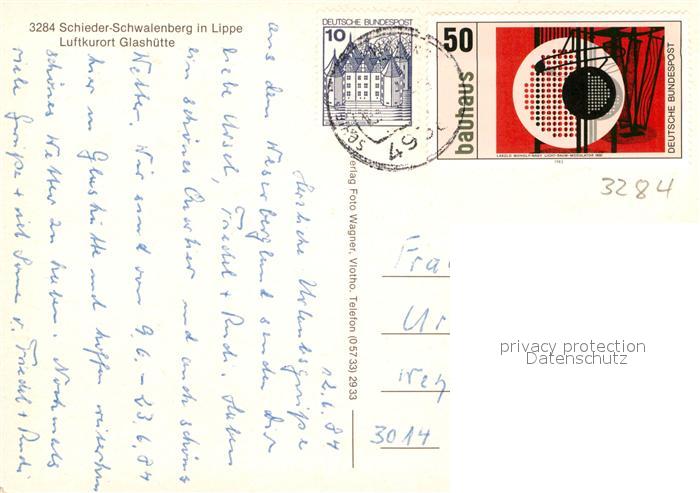 3284 Schieder-Schwalenberg in Lippe
Luftkurort Glashütte
12.6.84
Herzliche Urlaubsgrüße
aus dem Weserbergland senden Dir
liebe Ursel, Friedel + Rudi. Haben
ein schönes Quartier und auch schönes
Wetter. Wir sind vom 9.6. – 23.6.84
hier in Glashütte und hoffen weiterhin
schönes Wetter zu haben. Nochmals
viele Grüße + viel Sonne v. Friedel + Rudi
Verlag Foto Wagner, Vlotho. Telefon (0 57 33) 29 33
10
DEUTSCHE BUNDESPOST
50
bauhaus
DEUTSCHE BUNDESPOST
LÁSZLÓ MOHOLY-NAGY LICHT-RAUM-MODULATOR 1930
1983
3284
Fra
Ur
3014
privacy protection
Datenschutz